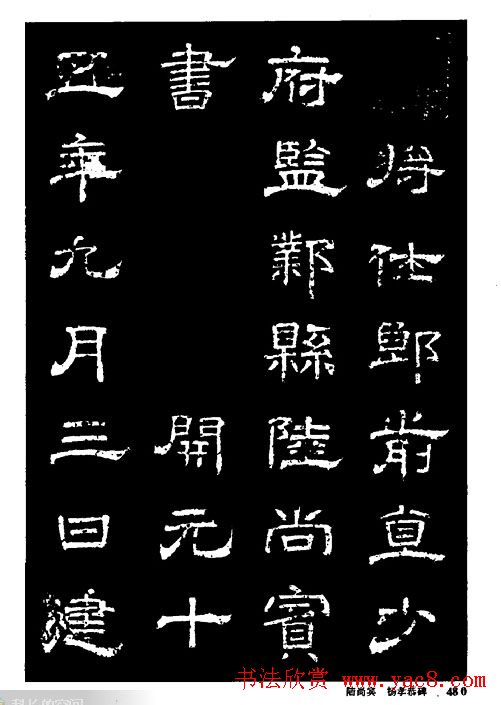 將仕郎前直少
府監鄴縣陸尚賓
書 開元十
五年九月三日建
书法欣赏 www.yac8.com
陆尚宾 杨孝恭碑 · 480